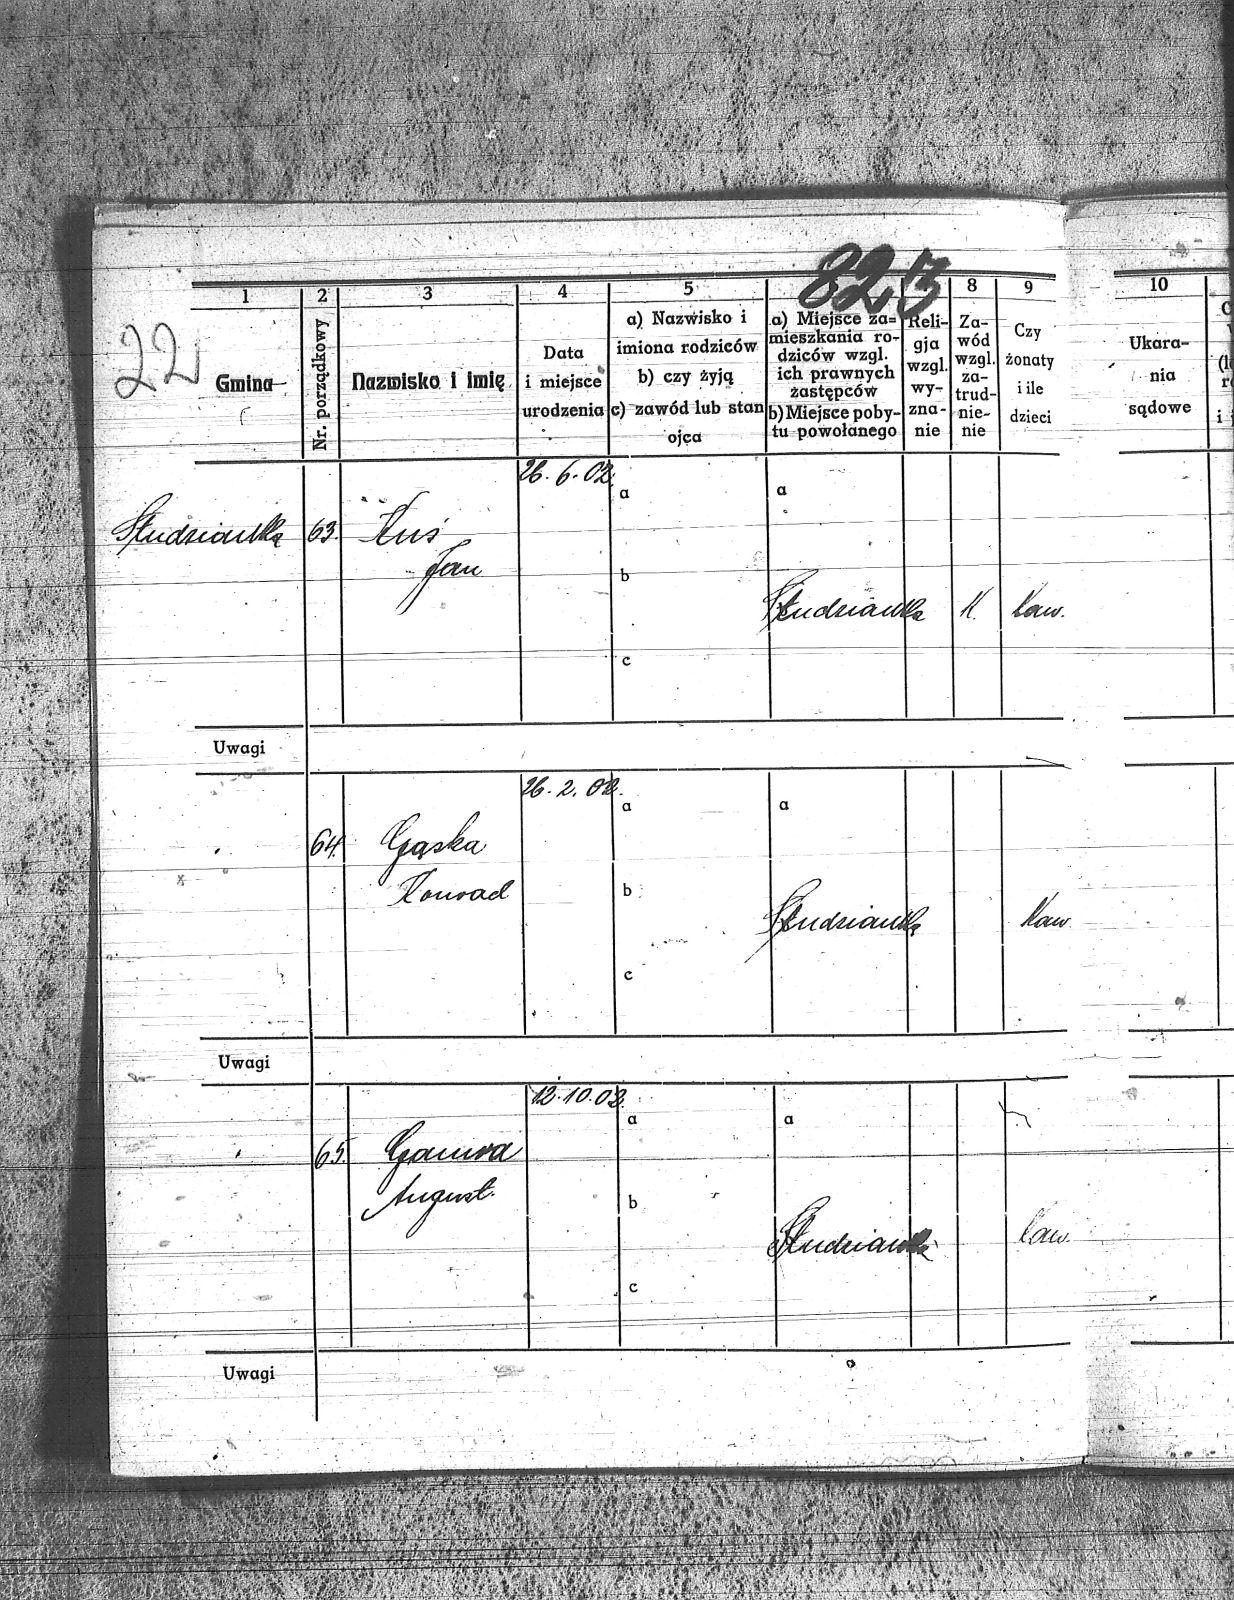 823
22
1 2 3 4 5 8 9 10
Gmina
Nr. porządkowy
Nazwisko i imię
Data
i miejsce
urodzenia
a) Nazwisko i
imiona rodziców
b) czy żyją
c) zawód lub stan
ojca
a) Miejsce za=
mieszkania ro-
dziców wzgl.
ich prawnych
zastępców
b) Miejsce poby-
tu powołanego
Reli-
gja
wzgl.
wy-
zna-
nie
Za-
wód
wzgl.
za-
trud-
nie-
nie
Czy
żonaty
i ile
dzieci
Ukara-
nia
sądowe
26.6.02.
a a
Studzianka 63. Kuś
Jan
b
Studzianka K. Kaw.
c
Uwagi
26.2.02.
a a
64. Gąska
Konrad
b
Studzianka Kaw.
c
Uwagi
12.10.02.
a a
65. Gamra
August.
b
Studzianka Kaw.
c
Uwagi